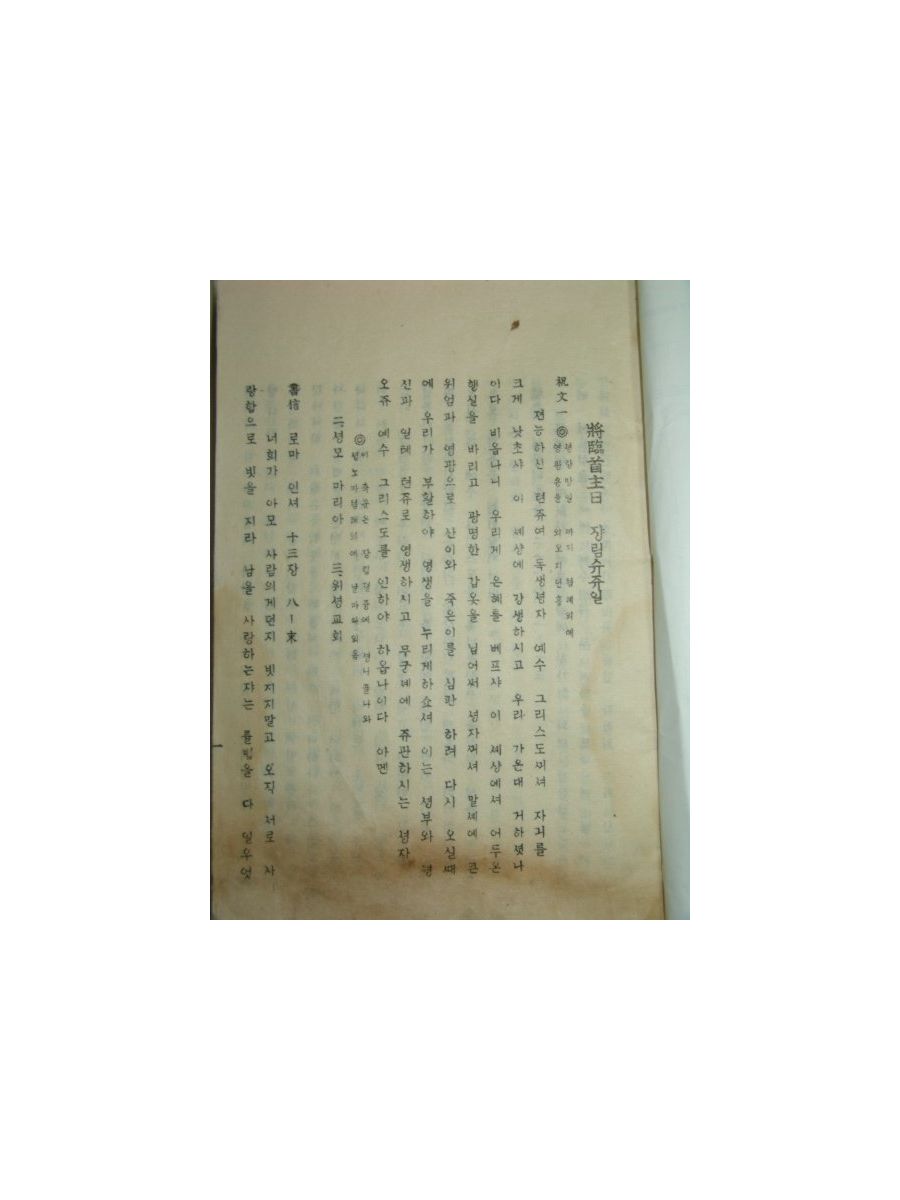 將臨首主日 쟝림슈쥬일
祝文一 ◎
젼능하신 텬쥬여 독생셩자 예수 그리스도께셔 자긔를
크게 낫초샤 이 셰샹에 강생하시고 우리 가온대 거하셧나
이다 비옵나니 우리게 은혜를 베프샤 이 셰상에셔 어두온
행실을 바리고 광명한 갑옷을 닙어써 셩자께셔 말셰에 큰
위엄과 영광으로 산이와 죽은이를 심판 하려 다시 오실때
에 우리가 부활하야 영생을 누리게하쇼셔 이는 셩부와 셩
진과 일톄 텬쥬로 영생하시고 무궁셰에 쥬관하시는 셩자
오쥬 예수 그리스도를 인하야 하옵나이다 아멘
◎
二、셩모 마리아 三、위셩교회
書信 로마 인셔 十三쟝 八ー末
너희가 아모 사람의게던지 빗지지말고 오직 서로 사
랑함으로 빗을 지라 남을 사랑하는쟈는 률법을 다 일우엇
一